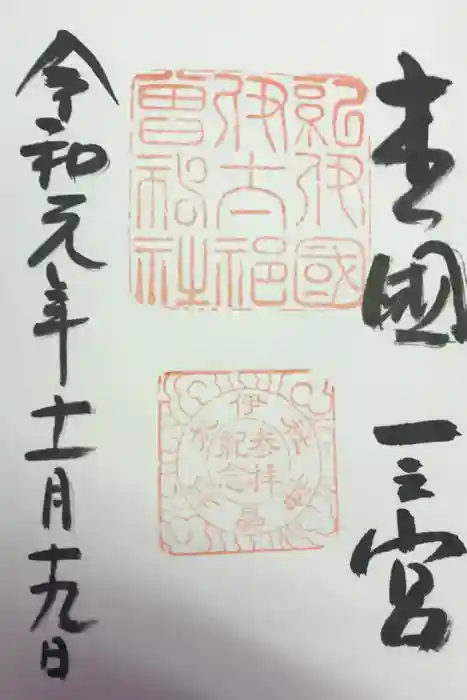 國 一之宮
紀伊國
伊太祁
曾神社
参拝
記念
令和元年十一月十九日